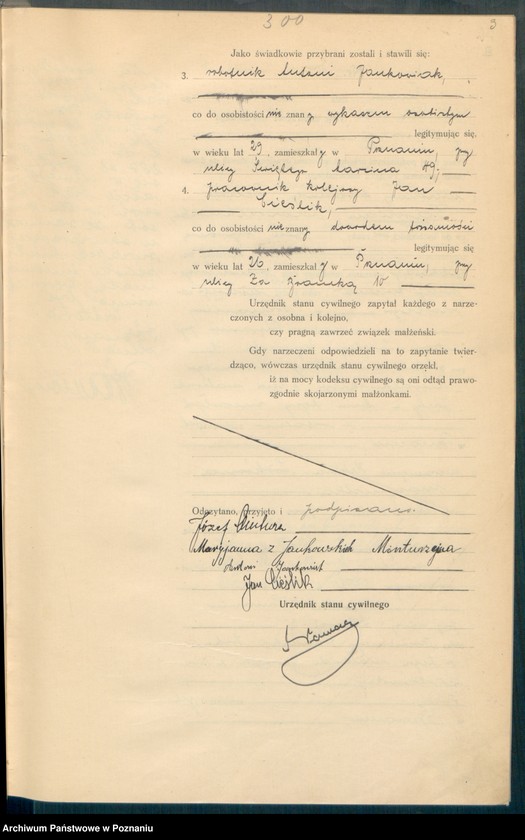 300
3
Jako świadkowie przybrani zostali i stawili się:
3. robotnik Antoni Jankowiak,
co do osobistości nie znany wykazem osobistym
legitymując się,
w wieku lat 29, zamieszkały w Poznaniu, przy
ulicy Świętego Marcina 49;
4. pracownik kolejowy Jan
Cieślik,
co do osobistości nie znany dowodem tożsamości
legitymując się
w wieku lat 26, zamieszkały w Poznaniu, przy
ulicy Za Bramką 10
Urzędnik stanu cywilnego zapytał każdego z narze-
czonych z osobna i kolejno,
czy pragną zawrzeć związek małżeński.
Gdy narzeczeni odpowiedzieli na to zapytanie twier-
dząco, wówczas urzędnik stanu cywilnego orzekł,
iż na mocy kodeksu cywilnego są oni odtąd prawo-
zgodnie skojarzonymi małżonkami.
Odczytano, przyjęto i podpisano.
Józef
Maryjanna z Jankowskich
Antoni Jankowiak
Jan Cieślik
Urzędnik stanu cywilnego
Archiwum Państwowe w Poznaniu